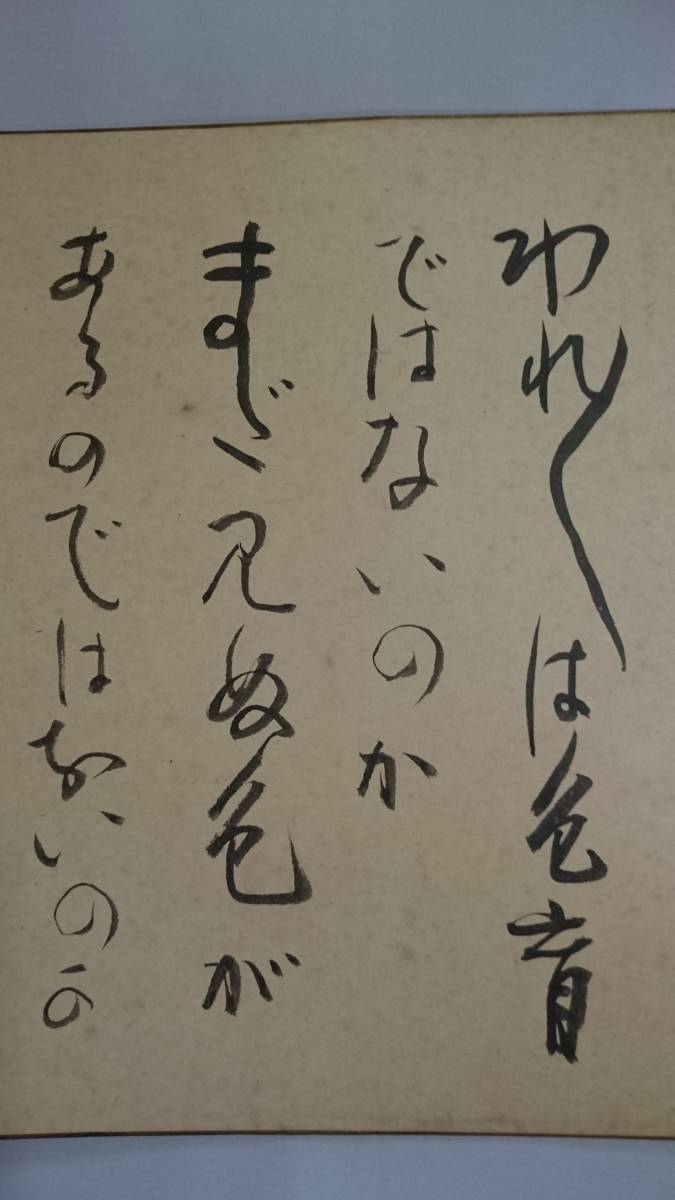 われ〳〵は色盲
ではないのか
まだ見ぬ色が
あるのではないのか